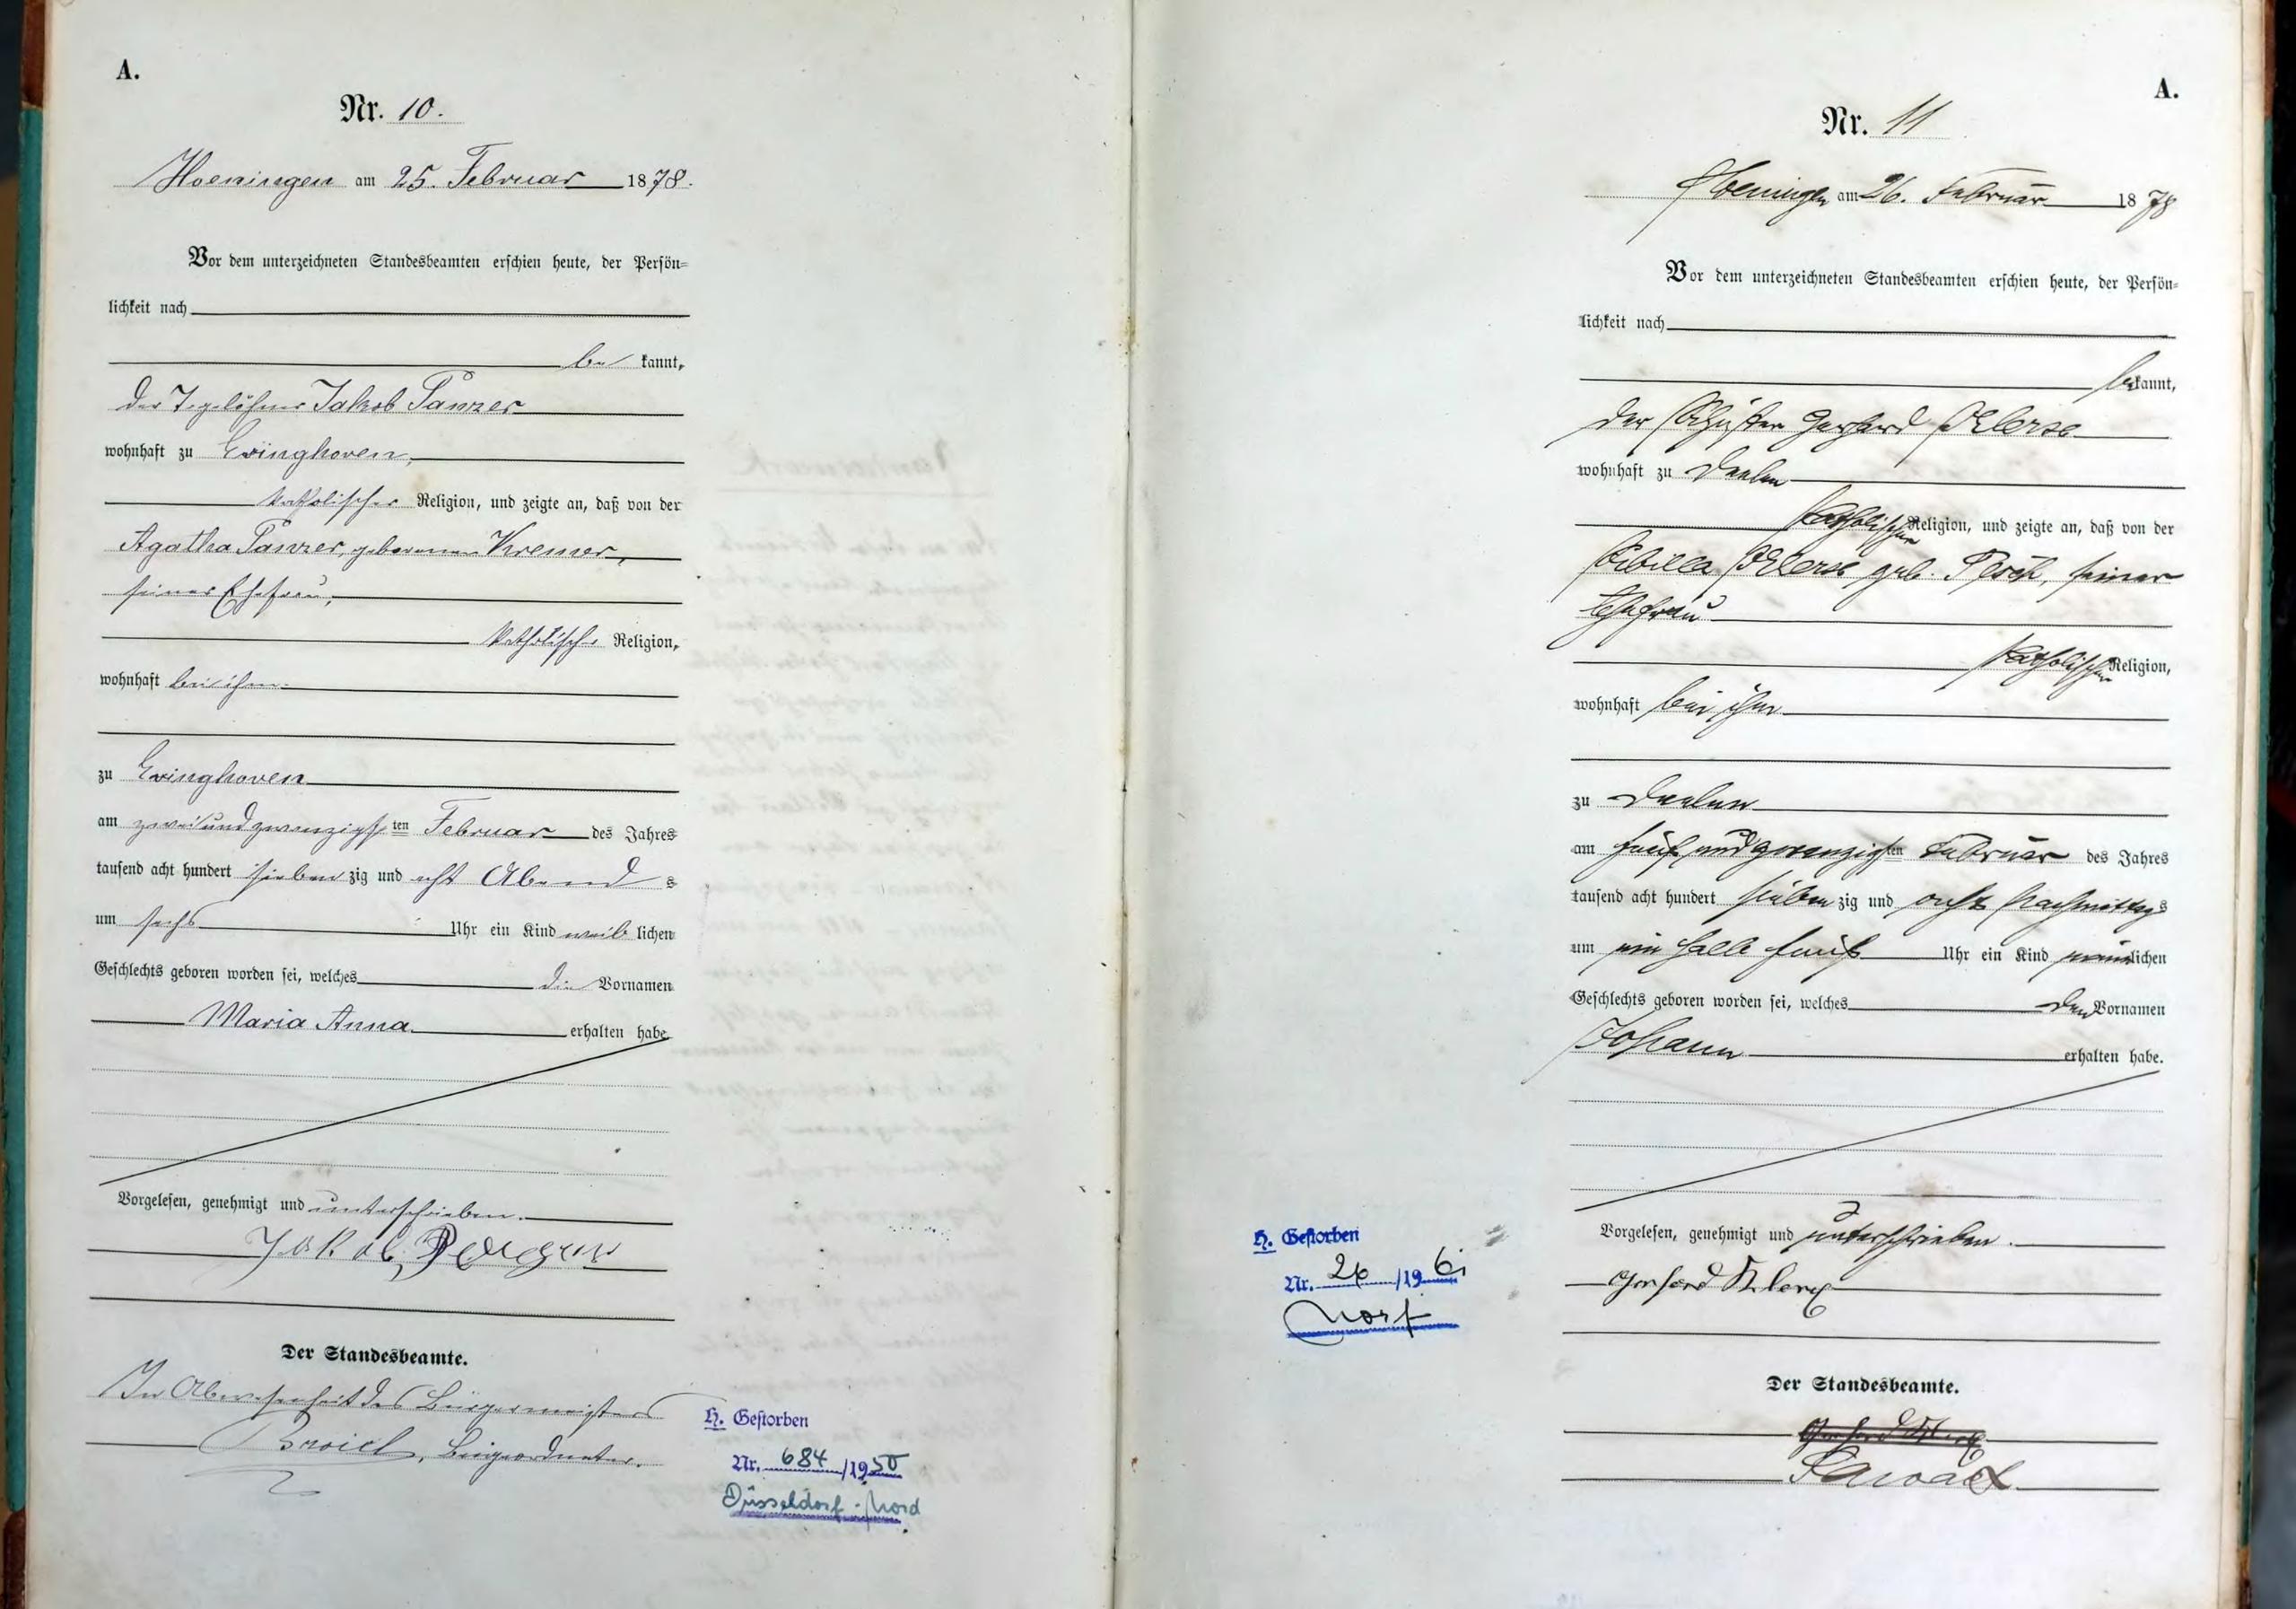 A.
Nr. 10.
Hoeningen am 25. Februar 1878.
Vor dem unterzeichneten Standesbeamten erschien heute, der Persön=
lichkeit nach
be kannt,
der Tagelöhner Jakob Panzer
wohnhaft zu Evinghoven,
katholischer Religion, und zeigte an, daß von der
Agatha Panzer, geborenen Kremer,
seiner Ehefrau,
katholischer Religion,
wohnhaft bei ihm
zu Evinghoven
am zweiundzwanzigsten Februar des Jahres
tausend acht hundert siebenzig und acht Abends
um sechs Uhr ein Kind weiblichen
Geschlechts geboren worden sei, welches die Vornamen
Maria Anna erhalten habe
Vorgelesen, genehmigt und unterschrieben.
Jakob
Der Standesbeamte.
In Abwesenheit des Bürgermeisters
Broich, Beigeordneter.
H. Gestorben
Nr. 684/1950
Düsseldorf-Nord
A.
Nr. 11
Hoeningen am 26. Februar 1878
Vor dem unterzeichneten Standesbeamten erschien heute, der Persön=
lichkeit nach
bekannt,
der Schuster Gerhard
wohnhaft zu Deelen
katholischer Religion, und zeigte an, daß von der
Sibilla geb. Pesch, seiner
Ehefrau
katholischer Religion,
wohnhaft bei ihm
zu Deelen
am fünfundzwanzigsten Februar des Jahres
tausend acht hundert siebenzig und acht Nachmittags
um ein halb fünf Uhr ein Kind männlichen
Geschlechts geboren worden sei, welches den Vornamen
Johann erhalten habe.
Vorgelesen, genehmigt und unterschrieben.
Gerhard
Der Standesbeamte.
H. Gestorben
Nr. 26/1961
Norf